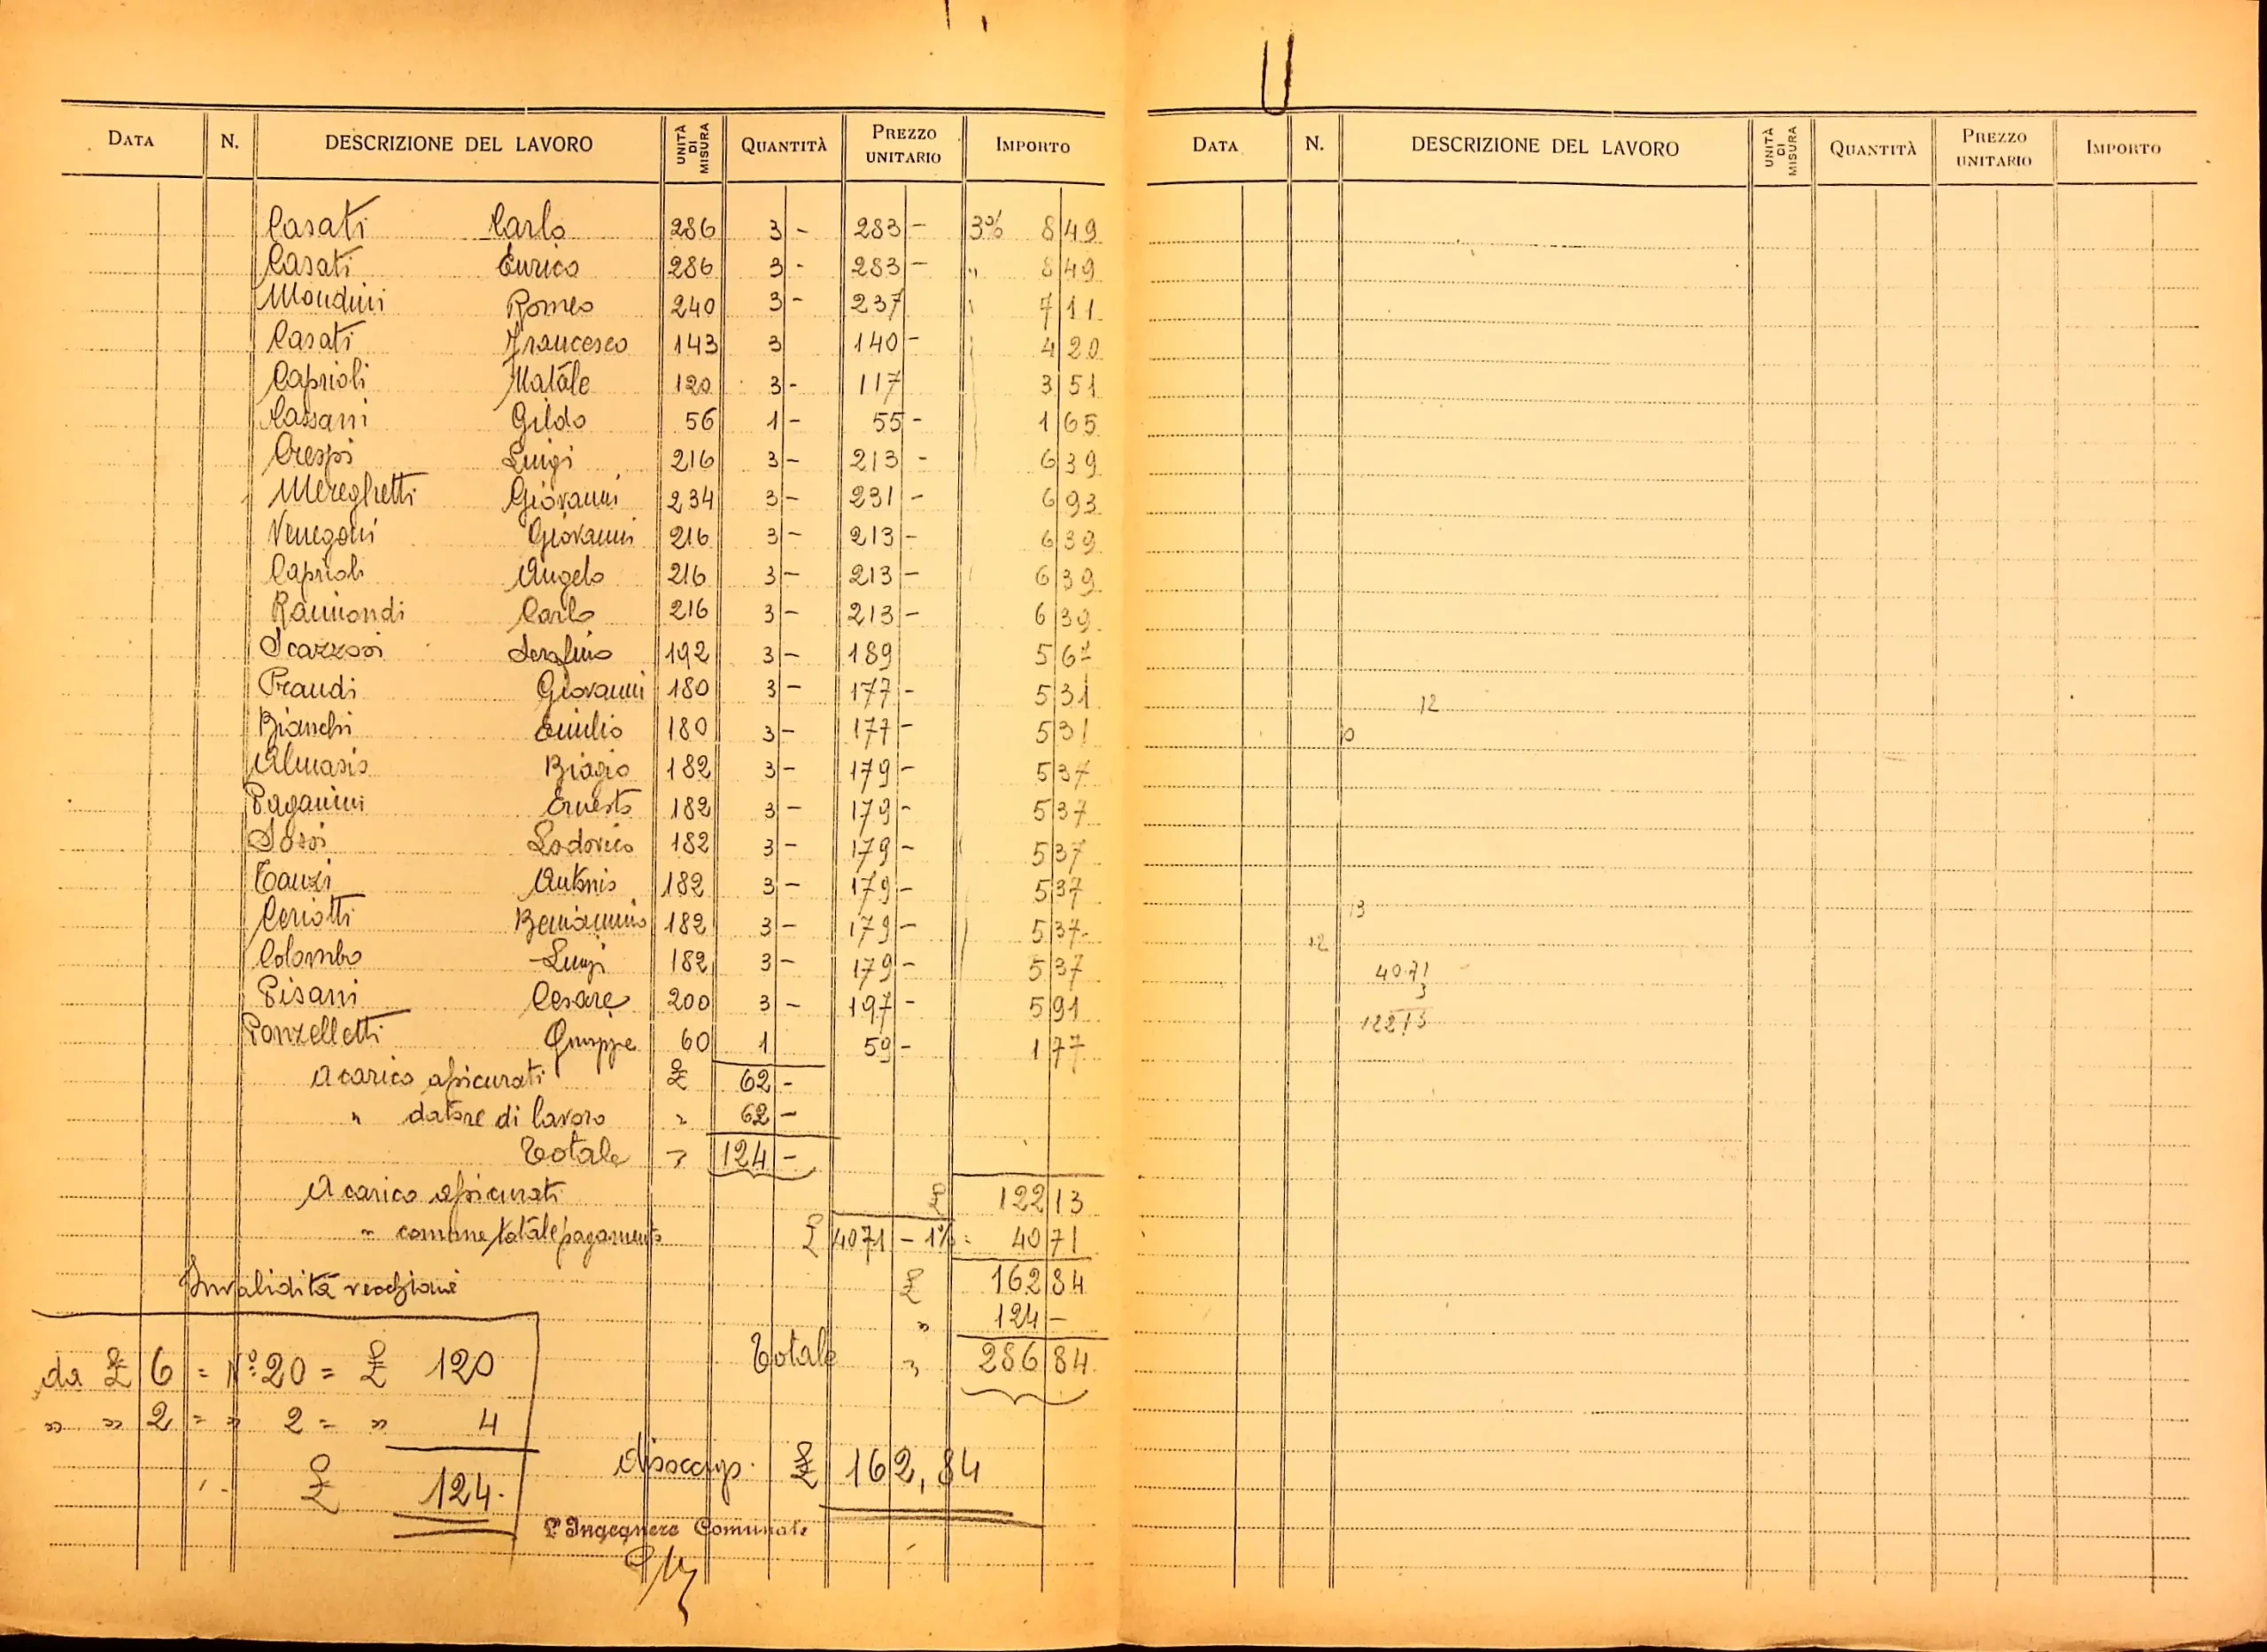 DATA N. DESCRIZIONE DEL LAVORO UNITÀ DI MISURA QUANTITÀ PREZZO UNITARIO IMPORTO
Casati Carlo 286 3 - 283 - 3% 8 49
Casati Enrico 286 3 - 283 - " 8 49
Mondini Romeo 240 3 - 237 7 11
Casati Francesco 143 3 140 - 4 20
Caprioli Natale 120 3 - 117 3 51
Cassani Gildo 56 1 - 55 - 1 65
Crespi Luigi 216 3 - 213 - 6 39
Mereghetti Giovanni 234 3 - 231 - 6 93
Venegoni Giovanni 216 3 - 213 - 6 39
Caprioli Angelo 216 3 - 213 - 6 39
Raimondi Carlo 216 3 - 213 - 6 39
Scazzosi Serafino 192 3 - 189 5 67
Prandi Giovanni 180 3 - 177 - 5 31
Bianchi Emilio 180 3 - 177 - 5 31
Almasio Biagio 182 3 - 179 - 5 37
Paganini Ernesto 182 3 - 179 - 5 37
Sossi Lodovico 182 3 - 179 - 5 37
Tanzi Antonio 182 3 - 179 - 5 37
Ceriotti Beniamino 182 3 - 179 - 5 37
Colombo Luigi 182 3 - 179 - 5 37
Pisani Cesare 200 3 - 197 - 5 91
Ponzelletti Giuseppe 60 1 59 - 1 77
A carico assicurati £ 62 -
" datore di lavoro " 62 -
Totale " 124 -
A carico assicurati £ 122 13
" comune totale pagamento £ 4071 - 1% = 40 71
£ 162 84
" 124 -
Totale " 286 84
Invalidità vecchiaia
da £ 6 = N° 20 = £ 120
" " 2 = " 2 = " 4
£ 124.
disoccup. £ 162,84
L'Ingegnere Comunale
DATA N. DESCRIZIONE DEL LAVORO UNITÀ DI MISURA QUANTITÀ PREZZO UNITARIO IMPORTO
12
13
12
40.71
3
12213